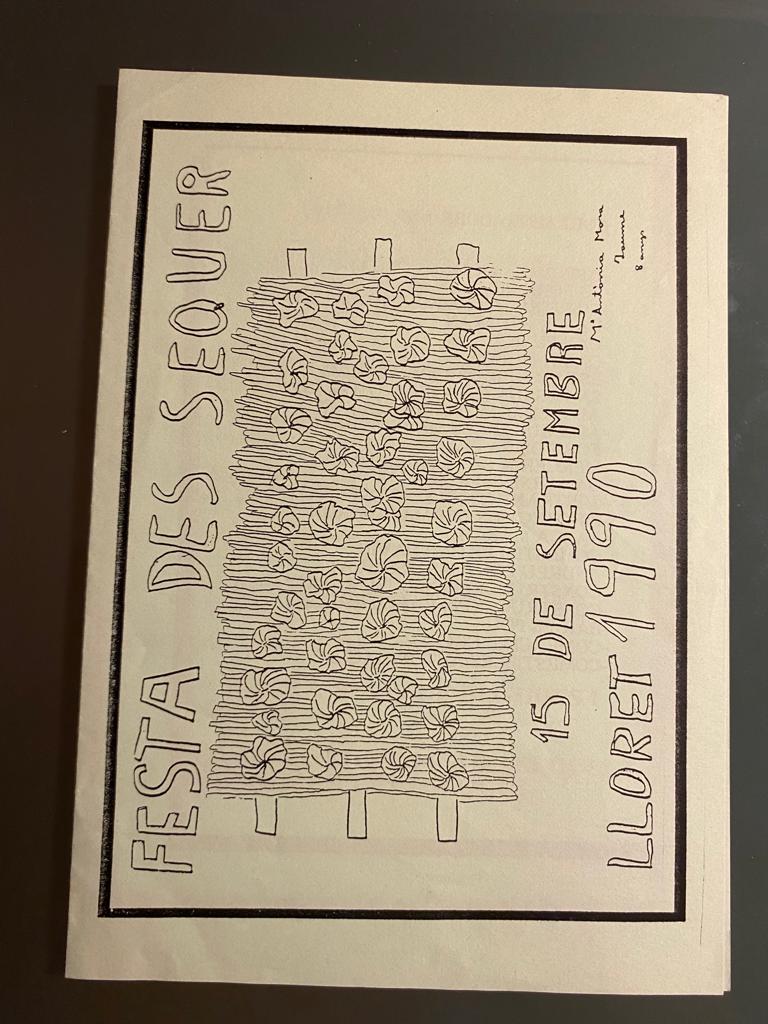 FESTA DES SEQUER
15 DE SETEMBRE
LLORET 1990
Mª Antònia Mora
Jaume
8 anys